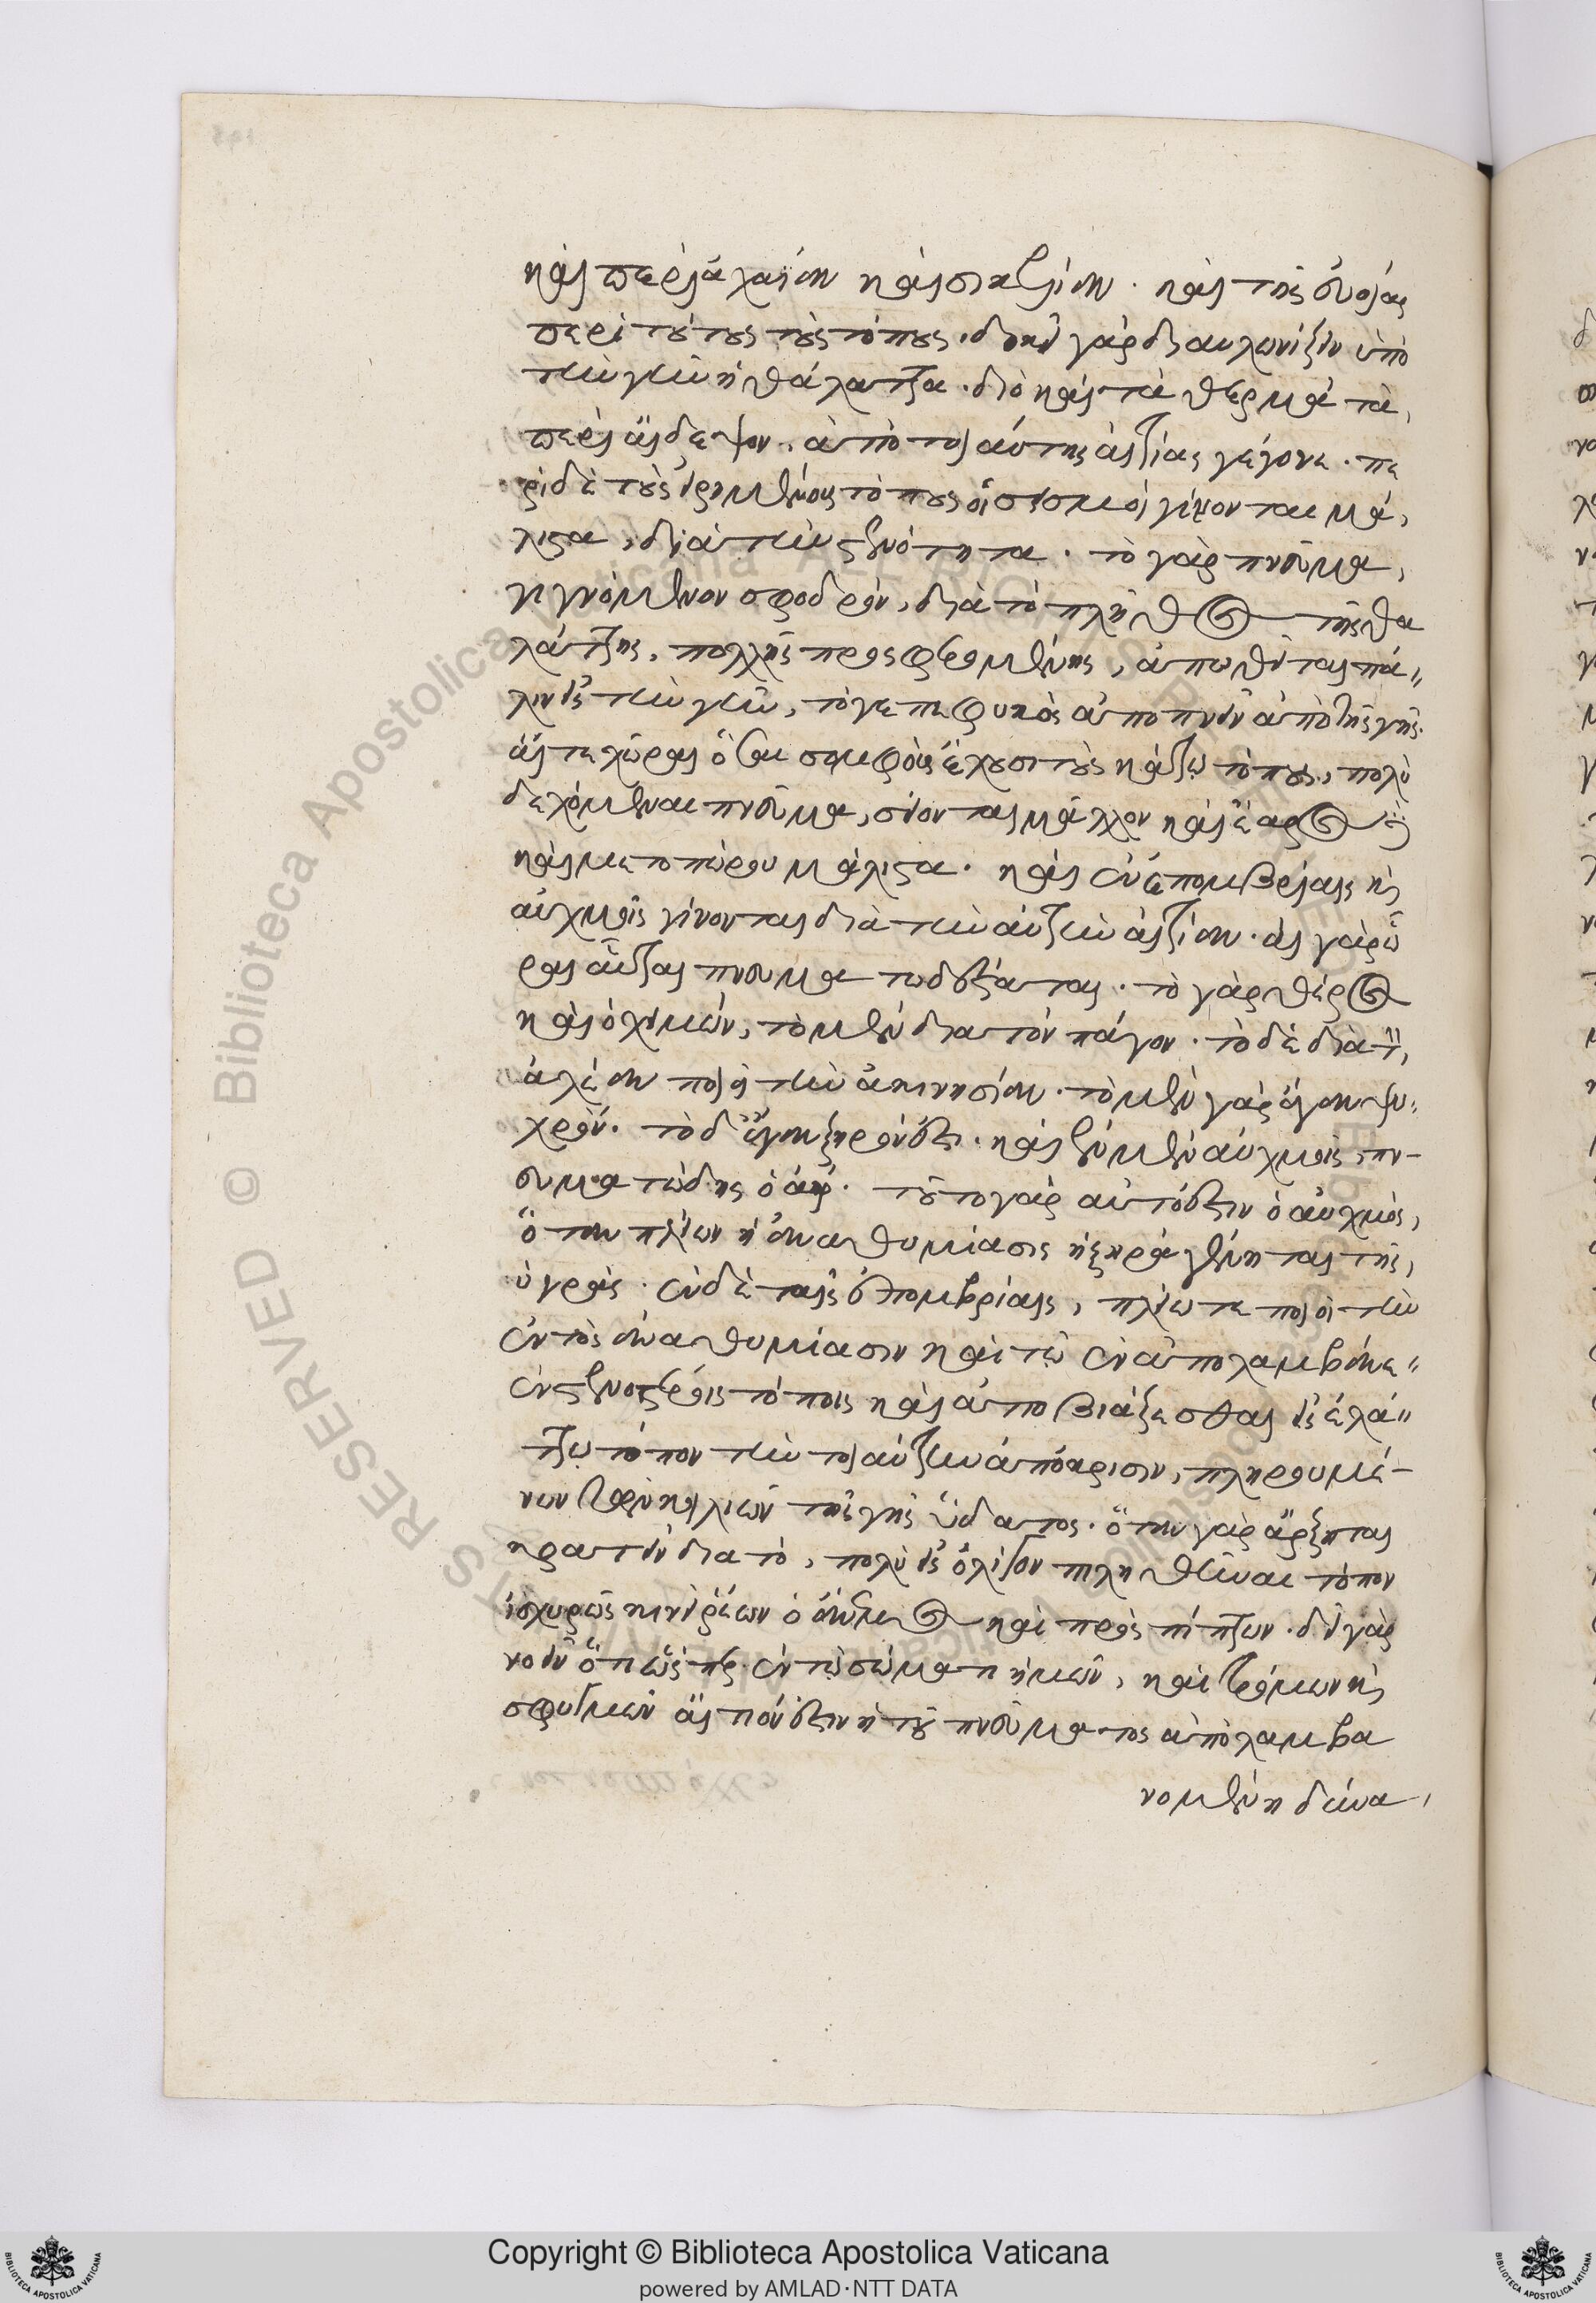 καὶ περὶ ἀχαίαν καὶ σικελίαν. καὶ τῆς εὐβοίας
περὶ τούτους τοὺς τόπους. δοκεῖ γὰρ διαυλωνίζειν ὑπὸ
τὴν γῆν ἡ θάλαττα. διὸ καὶ τὰ θερμὰ τὰ
περὶ αἴδεψον, ἀπὸ τοιαύτης αἰτίας γέγονε. πε
ρὶ δὲ τοὺς εἰρημένους τόπους οἱ σεισμοὶ γίνονται μά,
λιστα, διὰ τὴν στενότητα. τὸ γὰρ πνεῦμα,
γιγνόμενον σφοδρὸν, διὰ τὸ πλῆθος τῆς θα
λάττης, πολλῆς προσφερομένης, ἀπωθεῖται πά"
λιν εἰς τὴν γῆν, τό γε πεφυκὸς ἀποπνεῖν ἀπὸ τῆς γῆς.
αἵ τε χῶραι ὅσαι σομφοὺς ἔχουσι τοὺς κάτω τόπους, πολὺ
δεχόμεναι πνεῦμα, σείονται μᾶλλον καὶ ἔαρος δὲ
καὶ μετοπώρου μάλιστα. καὶ ἐν ἐπομβρίαις καὶ
αὐχμοῖς γίνονται διὰ τὴν αὐτὴν αἰτίαν. αἵ γὰρ ὧ
ραι αὗται πνευματωδέσταται. τὸ γὰρ θέρος
καὶ ὁ χειμὼν, τὸ μὲν διὰ τὸν πάγον. τὸ δὲ διὰ τὴν,
ἀλέαν ποιεῖ τὴν ἀκινησίαν. τὸ μὲν γὰρ ἄγαν ψυ"
χρόν. τὸ δ' ἄγαν ξηρόν ἐστι. καὶ ἐν μὲν αὐχμοῖς, πν-
ευματώδης ὁ ἀήρ. τοῦτο γὰρ αὐτό ἐστιν ὁ αὐχμὸς,
ὅταν πλείων ἡ ἀναθυμίασις ἡ ξηρὰ γένηται τῆς,
ὑγρᾶς. ἐν δὲ ταῖς ἐπομβρίαις, πλείω τε ποιεῖ τὴν
ἐντὸς ἀναθυμίασιν καὶ τῷ ἐναπολαμβάνε"
ἐν στενοτέροις τόποις καὶ ἀποβιάζεσθαι εἰς ἐλά"
ττω τόπον τὴν τοιαύτην ἀπόκρισιν, πληρουμέ-
νων τῶν κοιλιῶν τῆς γῆς ὕδατος. ὅταν γὰρ ἄρξηται
κρατεῖν διὰ τὸ, πολὺ εἰς ὀλίγον πιληθῆναι τόπον
ἰσχυρῶς κινεῖ ῥέων ὁ ἄνεμος καὶ προσπίπτων. δεῖ γὰρ
νοεῖν ὅτι ὥσπερ ἐν τῷ σώματι ἡμῶν, καὶ τρόμων καὶ
σφυγμῶν αἴτιόν ἐστιν ἡ τοῦ πνεύματος ἀπολαμβα
νομένη δύνα,